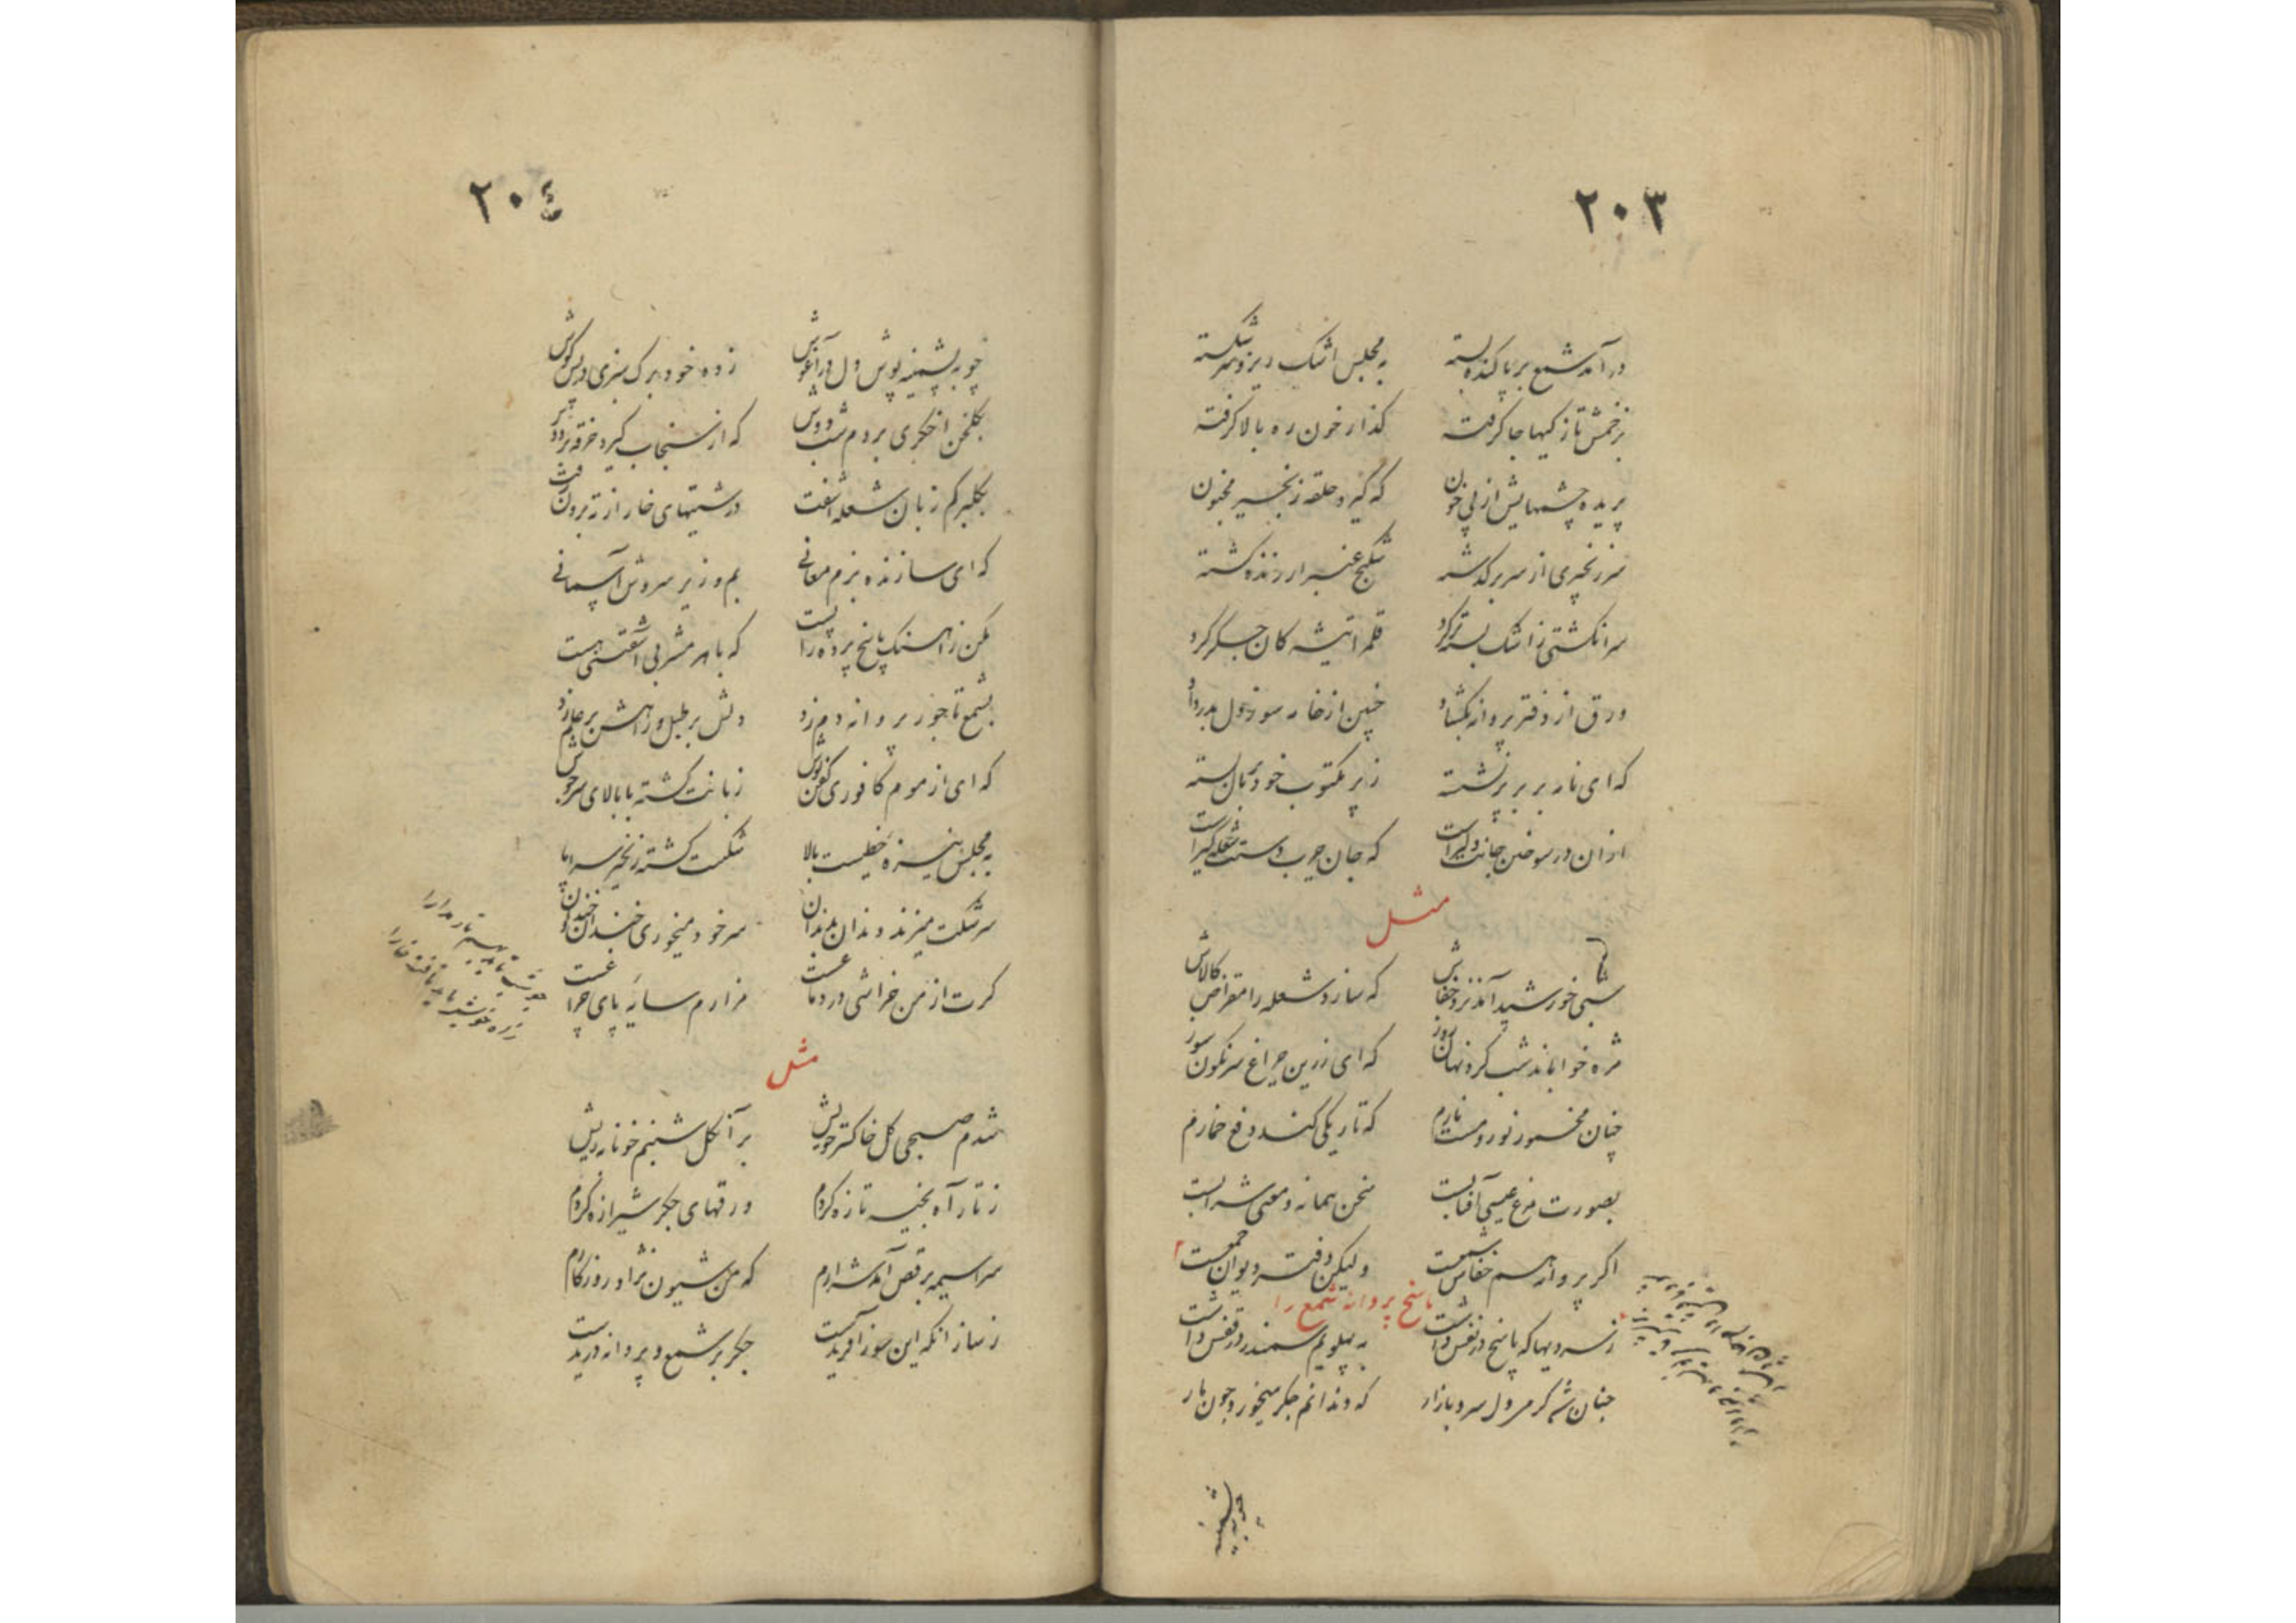 ۲۰۳
در آمد شمع بر پا کنده بسته به مجلس اشک ریز و سر شکسته
بزخمش تازکیها جا کرفته کذار خون ره بالا کرفته
پریده چشمهایش از پی خون که کیرد حلقه زنجیر مجنون
سر زنجیری از سر بر کذشته شکنج عنبر
سر انکشتی ز اشک قلمرا تیشه کان جکر کرد
ورق از دفتر پروانه بکشاد چنین از خار سوز دل
که ای نار بر بر نشسته ز پر مکتوب خود بر بال بسته
ازان در سوختن جانت دلیر است که جان چرب دست شعله کیر است
مثل
شبی خورشید آمد نزد خفاش که سازد شعله را مقراض کالاش
مژه خواباند شب کرد نهان روز که ای زرین چراغ سرنکون سوز
چنان مخمور نور و مست نارم که تاریکی کند دفع خمارم
بصورت مرغ عیسی آفتابست سخن پیمانه و معنی شرابست
اکر پروانه هم خفاش شمعست ولیکن دفتر و دیوان جمعست
پاسخ پروانه شمع را
ز سردیها که پاسخ در نفس داشت به پهلویم سمندر در قفس داشت
چنان شد کرم دل سرد بازار که دندانم جکر میخورد چون نار
چو پشمینه
۲۰٤
چو پشمینه پوش دل در آغوش زده خود برک سبزی در پس کوش
بکلخن اخکری بردم شب دوش که از سنجاب کیرد خرقه
بکلبرکم زبان شعله اشفت درشتیهای خار از ته برون رفت
که ای سازنده بزم معانی بم و زیر سروش آسمانی
مکن ز اهنک پاسخ پرده را پست که با هر مشربی آشفتنی هست
بشمع تاجور پروانه دم زد دلش بر طبل و زاهش بر علم زد
که ای از موم کافوری کفن پوش زبانت کشته با بالای سر جوش
به مجلس نیزه خطیست بالا شکست کشته زنجیر سراپا
سرشکت میزند دندان بدندان سر خود میخوری خندان خندان
کرت از من خراشی در دماغست مزارم سایه پای چراغست
مثل
شدم صبحی کل خاکستر خویش بر آن کل شبنم خونابه ریش
ز تار آه بخیه تازه کردم ورقهای جکر شیرازه کردم
سراسیمه برقص آمد شرارم که من شیون نژاد روزکارم
ز ساز انکه این سوز آفریدست جکر بر شمع و پروانه دریدست